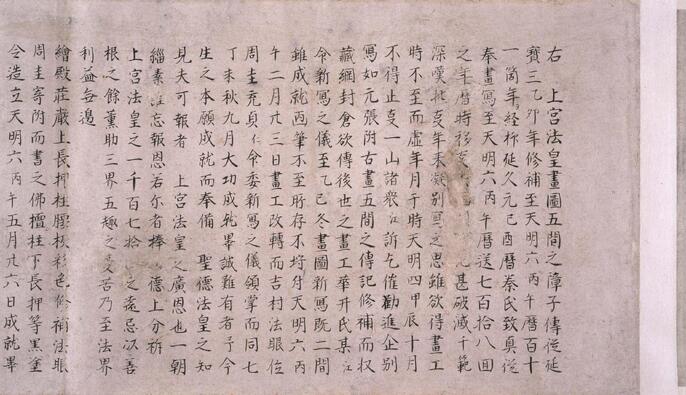 右 上宮法皇畫圖五間之障子傳從延
寳三乙卯年修補至天明六丙午曆百十
一箇年經杦延久元己酉曆秦氏致真從
奉畫寫至天明六丙午曆送七百拾八回
之年曆時移 甚破減千範
深嘆 年来 別寫之思雖欲得畫工
時不至而虚年月于時天明四甲辰十月
不得止支一山諸衆 訴乞催勸進企別
寫如元張附古畫五間之傳記修補而収
藏綱封倉欲傳後世之畫工華升氏某
命新寫之儀至乙巳冬畫圖新寫既二間
雖成就画筆不至所存不 天明六丙
午二月廿三日畫工改轉而吉村法眼位
周圭充貞 命委新寫之儀領掌而同七
丁未秋九月大功成就畢誠難有者予今
生之本願成就而奉備 聖德法皇之知
見夫可報者 上宮法皇之廣恩也一朝
緇素 忘報恩若尓者捧 德上分祈
上宮法皇之一千百七十 之遠忌次善
根之餘薫助三界五趣之 苦乃至法界
利益無邊
繪殿莊嚴上長押柱膠 彩色修補法眼
周圭寄附而書之佛檀柱下長押等黒塗
令造立天明六丙午五月廿六日成就畢